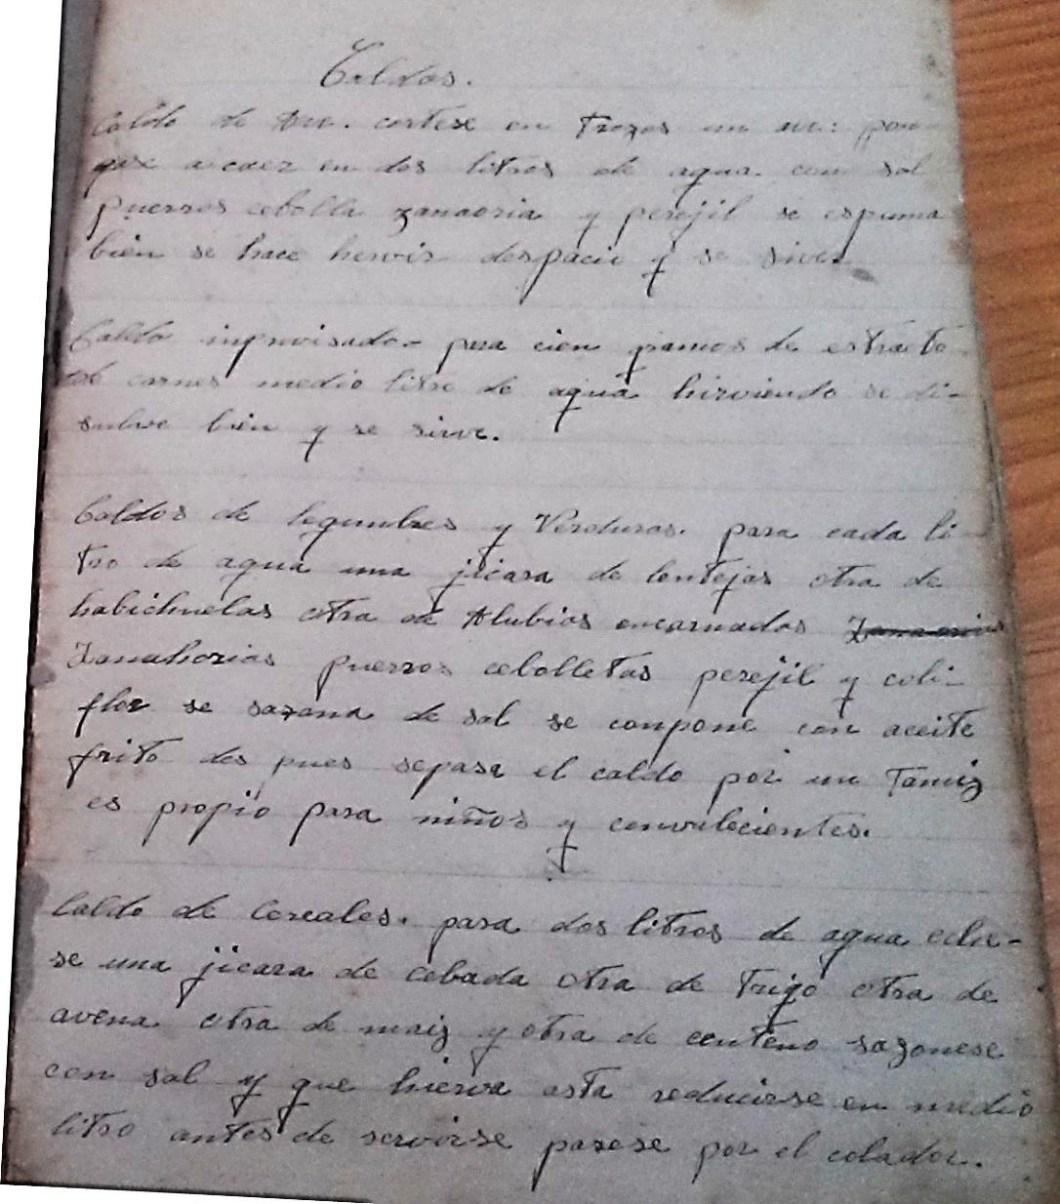 Caldos.
Caldo de Ave. cortese en trozos un ave: pon
gase a cocer en dos litros de agua. con sol
puerros cebolla zanaoria y perejil se espuma
bien se hace hervir despacio y se sirve
Caldo inprovisado- para cien gramos de estracto
de carnes medio litro de agua hirviendo se di-
suelve bien y se sirve.
Caldos de legumbres y Verduras. para cada li-
tro de agua una jicara de lentejas otra de
habichuelas otra de Alubias encarnadas Zanaorias
Zanahorias puerros cebolletas perejil y coli-
flor se sazona de sal se conpone con aceite
frito des pues sepasa el caldo por un Tamiz
es propio para niños y convalecientes.
Caldo de Cereales. para dos litros de agua eche-
se una jicara de cebada otra de Trigo otra de
avena otra de maiz y otra de centeno sazonese
con sal y que hierva asta reducirse en medio
litro antes de servirse pasese por el colador.